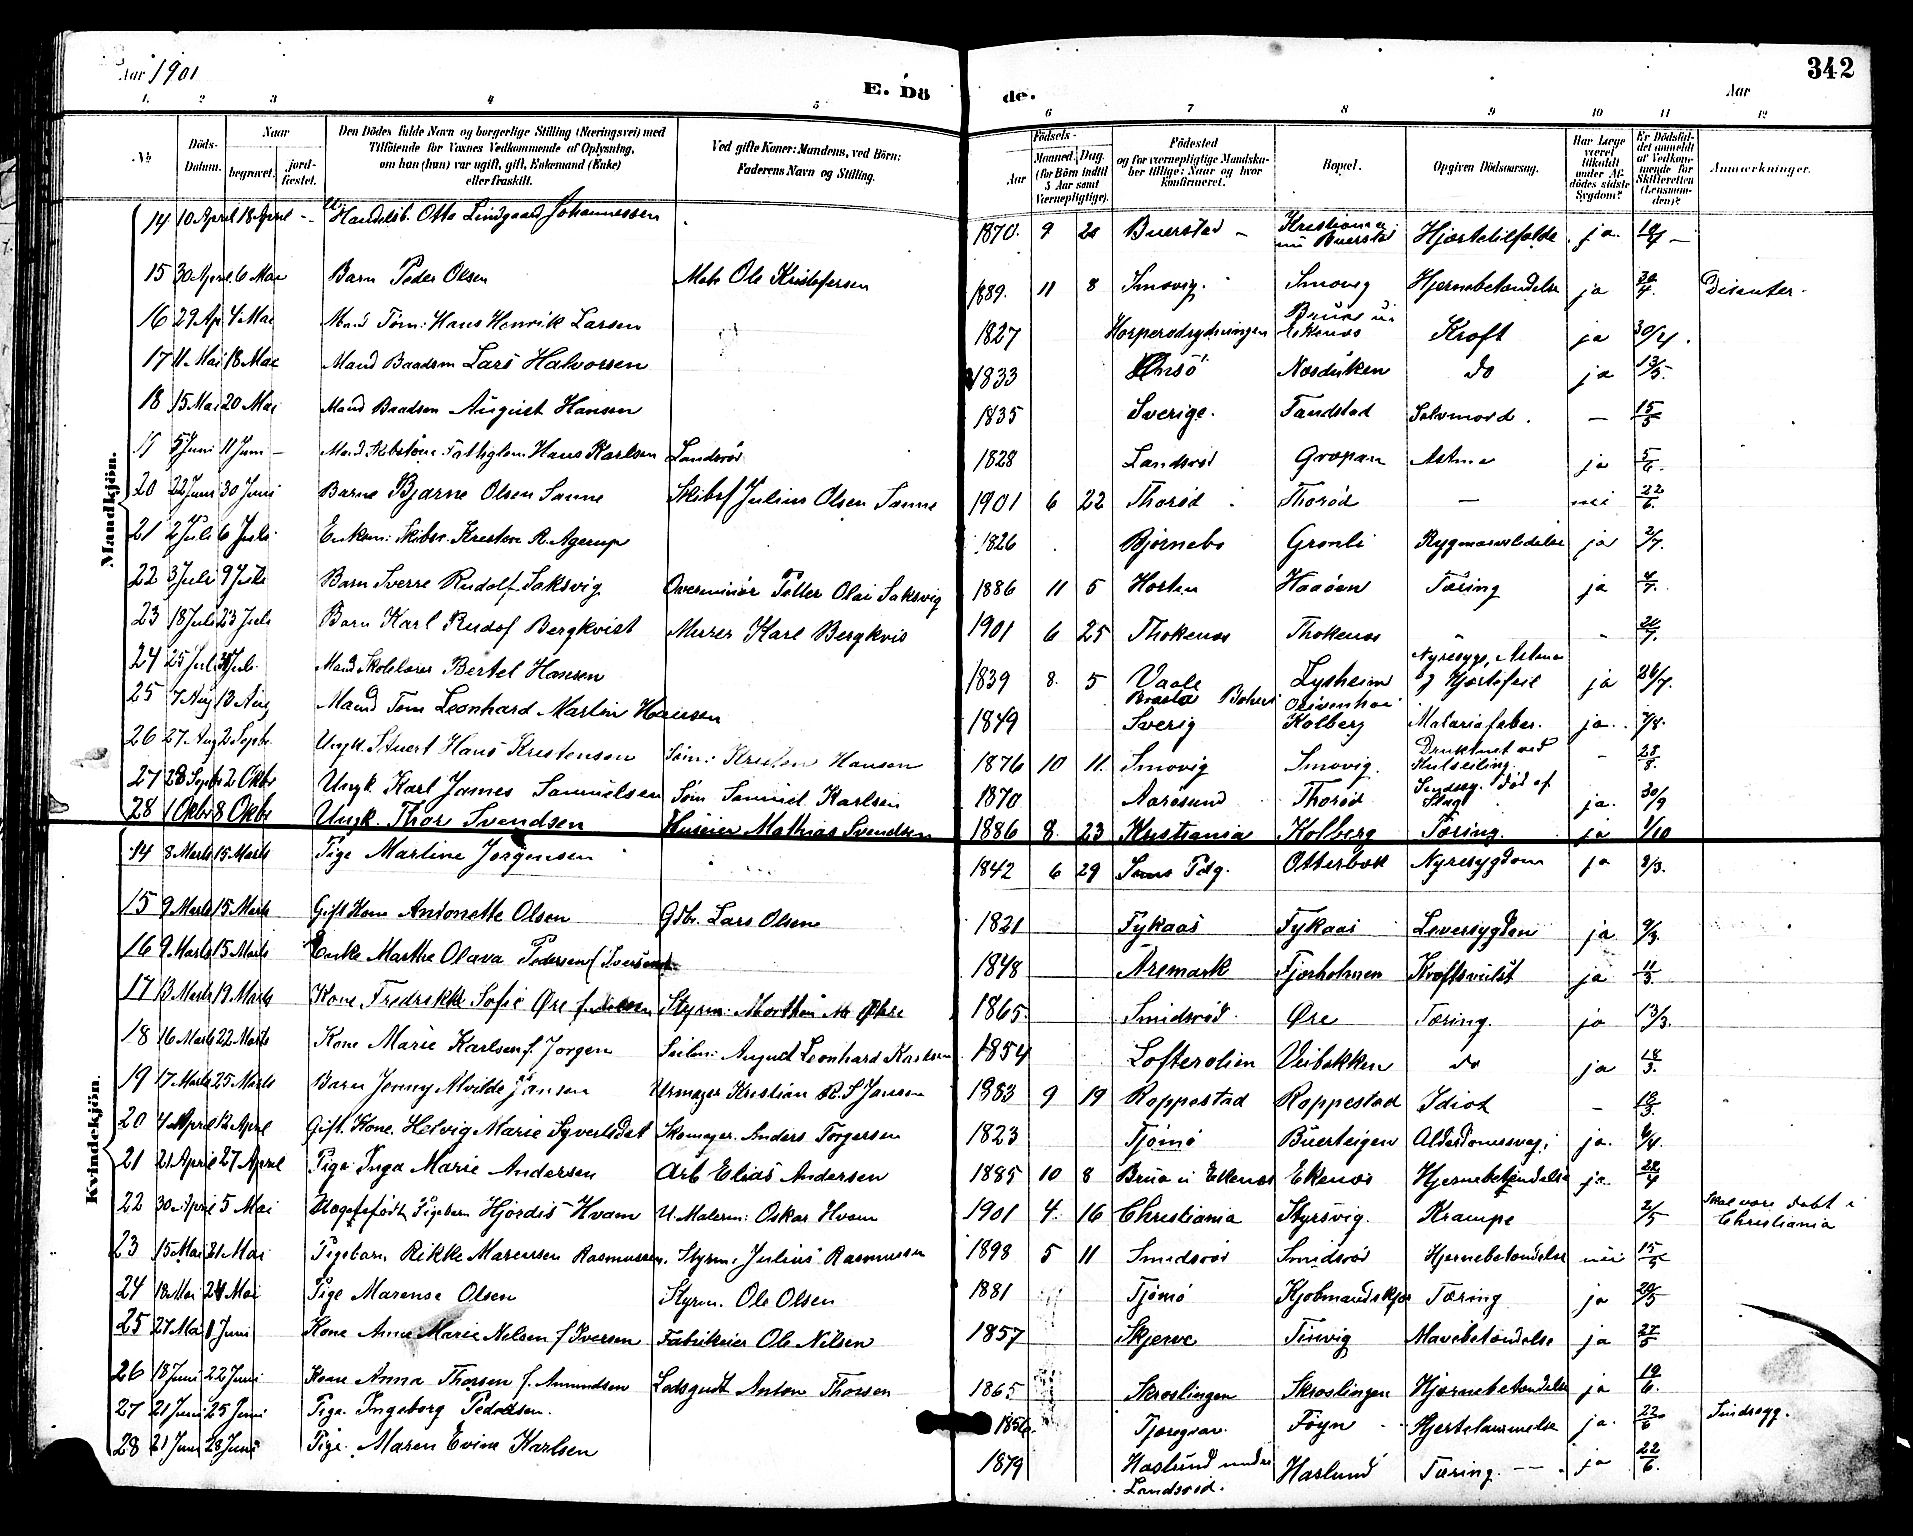 Aar 1901
E. Dö de.
342
Aar
1. 2 3 4 5 6 7 8 9 10 11 12
№
Döds-Datum.
Naar
begravet.
jord-fæstet.
Den Dödes fulde Navn og borgerlige Stilling (Næringsvei) med Tilföiende for Voxnes Vedkommende af Oplysning, om han (hun) var ugift, gift, Enkemand (Enke) eller fraskilt.
Ved gifte Koner: Mandens, ved Börn: Faderens Navn og Stilling.
Födsels-
Aar
Maaned. Dag.
(for Börn indtil 5 Aar samt Værnepligtige).
Födested og for værnepligtige Mandskaber tillige: Naar og hvor konfirmeret.
Bopæl.
Opgiven Dödsaarsag.
Har Læge været tilkaldt under Afdödes sidste Sygdom?
Er Dödsfaldet anmeldt af Vedkommende for Skifteretten (Lensmanden)?
Anmærkninger.
Mandkjön.
14 10 April 18 April - Handelsb. Otto Lindgaard Johannessen 1870. 9 Buerstad - Kristiania Buerstad Hjærtetilfælde ja.
15 30 April 6 Mai Barn Peder Olsen Mats Ole Kristofersen 1889. 11 8 Smovig. Smovig Hjernebetændelse ja 30/4. Disenter.
16 29 Ap 4 Mai Mand Tøm: Hans Henrik Larsen 1827 Ekenæs Kræft ja 30/4.
17 11 Mai 18 Mai Mand Baadsm Lars Halvorsen 1833 Næsdukken do ja 13/5.
18 15 Mai 20 Mai Mand Baadsm August Hansen 1835 Sverige. Tandstad Selvmord. - 15/5
5 Juni 11 Juni - Hans Karlsen Landsrød 1828 Landsrød Gropan Astma ja 5/6.
20 22 Juni 30 Juni Barne Bjarne Olsen Sanne Skibsf Julius Olsen Sanne 1901 6 22 Thorød Thorød - nei 22/6.
21 2 Juli 6 Juli Enkem: Skibsr. R. Agerup 1826 Bjørnebo Grønli Rygmarvslidelse ja 2/7.
22 3 Juli 9 Juli Barn Sverre Rudolf Saksvig Overminør Petter Olai Saksvig 1886 11 5 Horten Haaøen Tæring ja 4/7.
23 18 Juli 23 Juli Barn Karl Rudof Bergkvist Murer Karl Bergkvis 1901 6 25 Thokenæs Thokenæs
24 25 Juli Juli Mand Skolelærer Bertel Hansen 1839 8. 5 Vaale Lysheim Nyresyge, Astma og Hjertefeil ja 26/7.
25 7 Aug 13 Aug Mand Tøm Leonhard Martin Hansen 1849 Sverig Kolberg Malariafeber. ja. 7/8.
26 27 Aug 2 Septb. Ungk. Stuert Hans Kristensen Søm: Kristen Hansen 1876 10 11. Smovig Smovig. Druknet ved Kulseiling. - 28/8.
27 28 Septb 2 Oktbr Ungk Karl James Samuelsen Søm Samuel Karlsen 1870 Aarøsund Thorød Sindsyg. Død af Slag ja. 30/9
28 1 Oktbr 8 Oktbr Ungk. Thor Svendsen Huseier Mathias Svendsen 1886 8. 23 Kristiania Kolberg Tæring. ja 1/10
Kvindekjön.
14 8 Marts 15 Marts Pige Martine Jørgensen 1842 6 29 Otterbæk Nyresygdom ja 8/3.
15 9 Marts 15 Marts Gift Kone Antonette Olsen Gdbr. Lars Olsen 1821 Fykaas Fykaas Leversygdom ja 9/3.
16 9 Marts 15 Marts Enke Marthe Olava Pedersen (Iversen 1848 Aremark Fjærholmen Kræftsvulst ja 11/3.
17 13 Marts 19 Marts Kone Fredrikke Sofie Øre f. Nilsen Styrm: Morthin M Øhre 1865. Smidsrød. Øre Tæring. ja 13/3.
18 16 Marts 22 Marts Kone Marie Karlsen f. Jørgen Seilm: August Leonhard Karlsen 1854 Lofterolien Veibakken do ja 18/3.
19 17 Marts 25 Marts Barn Jenny Alvilde Jansen Urmager Kristian R. S Jansen 1883 9 19 Roppestad Roppestad Idiot - 18/3.
20 4 April 12 April Gift. Kone. Helvig Marie Syvertsdat Skomager. Anders Torgersen 1823 Tjømø Buerteigen Alderdomssvag. ja.
21 21 April 27 April Pige Inga Marie Andersen Arb Elias Andersen 1885 10 8 Brua u Ekenæs Ekenæs Hjernebetændelse ja. 22/4
22 30 April 5 Mai Uægtefødt Pigebarn Hjørdis Hvam U. Malerm: Oskar Hvam 1901 4. 16 Christiania Styrsvig. Krampe 2/5 Skal være døbt i Christiania
23 15 Mai 21 Mai Pigebarn Rikke Marensen Rasmussen. Styrm: Julius Rasmussen 1898 5 11 Smidsrød Smidsrød Hjernebetændelse nei 15/5
24 18 Mai 24 Mai Pige Marense Olsen Styrm. Ole Olsen 1881 Tjømø Kjøbmandskjær Tæring ja 20/5
25 27 Mai 1 Juni Kone Anne Marie Nilsen f Iversen Fabrikeier Ole Nilsen 1857 Skjerve Tinvig Mavebetændelse ja 27/5
26 18 Juni 22 Juni Kone Anna Thorsen f. Amundsen Lodsgudt Anton Thorsen 1865 Skroslingen Skroslingen Hjernebetændelse ja 19/6.
27 21 Juni 25 Juni Pige. Ingeborg Pedersen. 1856. Føyn Hjertelammelse ja. 22/6 Sindssyg.
28 21 Juni 28 Juni Pige. Maren Evine Karlsen 1879 Haslund under Landsrød. Haslund Tæring. - - ja 22/6.